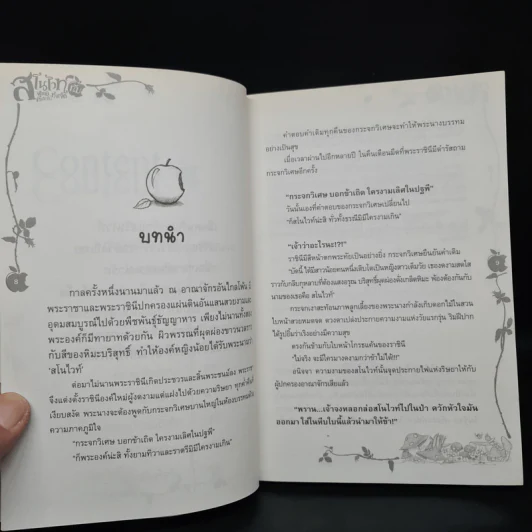 สโนไวท์
บทนำ
กาลครั้งหนึ่งนานมาแล้ว ณ อาณาจักรอันไกลโพ้น มี
พระราชาและพระราชินีปกครองแผ่นดินอันแสนสวยงามและ
อุดมสมบูรณ์ไปด้วยพืชพันธุ์ธัญญาหาร เพียงไม่นานทั้งสอง
พระองค์ก็มีทายาทด้วยกัน ผิวพรรณที่ผุดผ่องขาวนวลราว
กับสีของหิมะบริสุทธิ์ ทำให้องค์หญิงน้อยได้รับพระนาม
'สโนไวท์'
ต่อมาไม่นานพระราชินีเกิดประชวรและสิ้นพระชนม์ลง
จึงแต่งตั้งราชินีองค์ใหม่ผู้งดงามแต่แฝงไปด้วยความริษยา ทุกค่ำคืน
เงียบสงัด พระนางจะต้องพูดกับกระจกวิเศษบานใหญ่ในห้องบรรทม
ความภาคภูมิใจ
"กระจกวิเศษ บอกข้าเถิด ใครงามเลิศในปฐพี"
"ก็พระองค์น่ะสิ ทั้งยามทิวาและราตรีมิมีใครงามเกิน"
คำตอบคำเดิมทุกคืนของกระจกวิเศษจะทำให้พระนางบรรทม
อย่างเป็นสุข
เมื่อเวลาผ่านไปอีกหลายปี ในคืนเดือนมืดที่พระราชินีมีดำรัสถาม
กระจกวิเศษอีกครั้ง
"กระจกวิเศษ บอกข้าเถิด ใครงามเลิศในปฐพี"
วันนั้นเองที่คำตอบของกระจกวิเศษเปลี่ยนไป
"ก็สโนไวท์น่ะสิ ทั่วทั้งธรณีมิมีใครงามเกิน"
"เจ้าว่าอะไรนะ!?!"
ราชินีมีสีหน้าตกพระทัยยิ่ง กระจกวิเศษยืนยันคำเดิม
"บัดนี้ ได้มีสาวน้อยคนหนึ่งเติบโตเป็นหญิงสาวเต็มวัย เธองดงามสดใส
ราวกับกลีบกุหลาบที่ต้องแสงอรุณ บริสุทธิ์ผุดผ่องดังเกล็ดหิมะ พ้องต้องกันกับ
นามของเธอคือ สโนไวท์"
กระจกเงาสะท้อนภาพลูกเลี้ยงของพระนางกำลังเก็บดอกไม้ในสวน
ใบหน้าสวยหมดจด ดวงตาเปล่งประกายความงามแห่งวัยแรกรุ่น ริมฝีปาก
รูปได้รูปร่าเริงอย่างมีความสุข
ตรงกันข้ามกับใบหน้าโกรธแค้นของราชินี
"ไม่จริง จะมีใครงามงดงามกว่าข้าไม่ได้!!"
อนิจจา ความงามของสโนไวท์นั้นจุดประกายไฟแห่งริษยาให้กับ
ผู้ปกครองอาณาจักรเสียแล้ว
"พราน...เจ้าจงหลอกล่อสโนไวท์ไปในป่า ควักหัวใจมัน
ออกมา ใส่ในหีบใบนี้แล้วนำมาให้ข้า!"